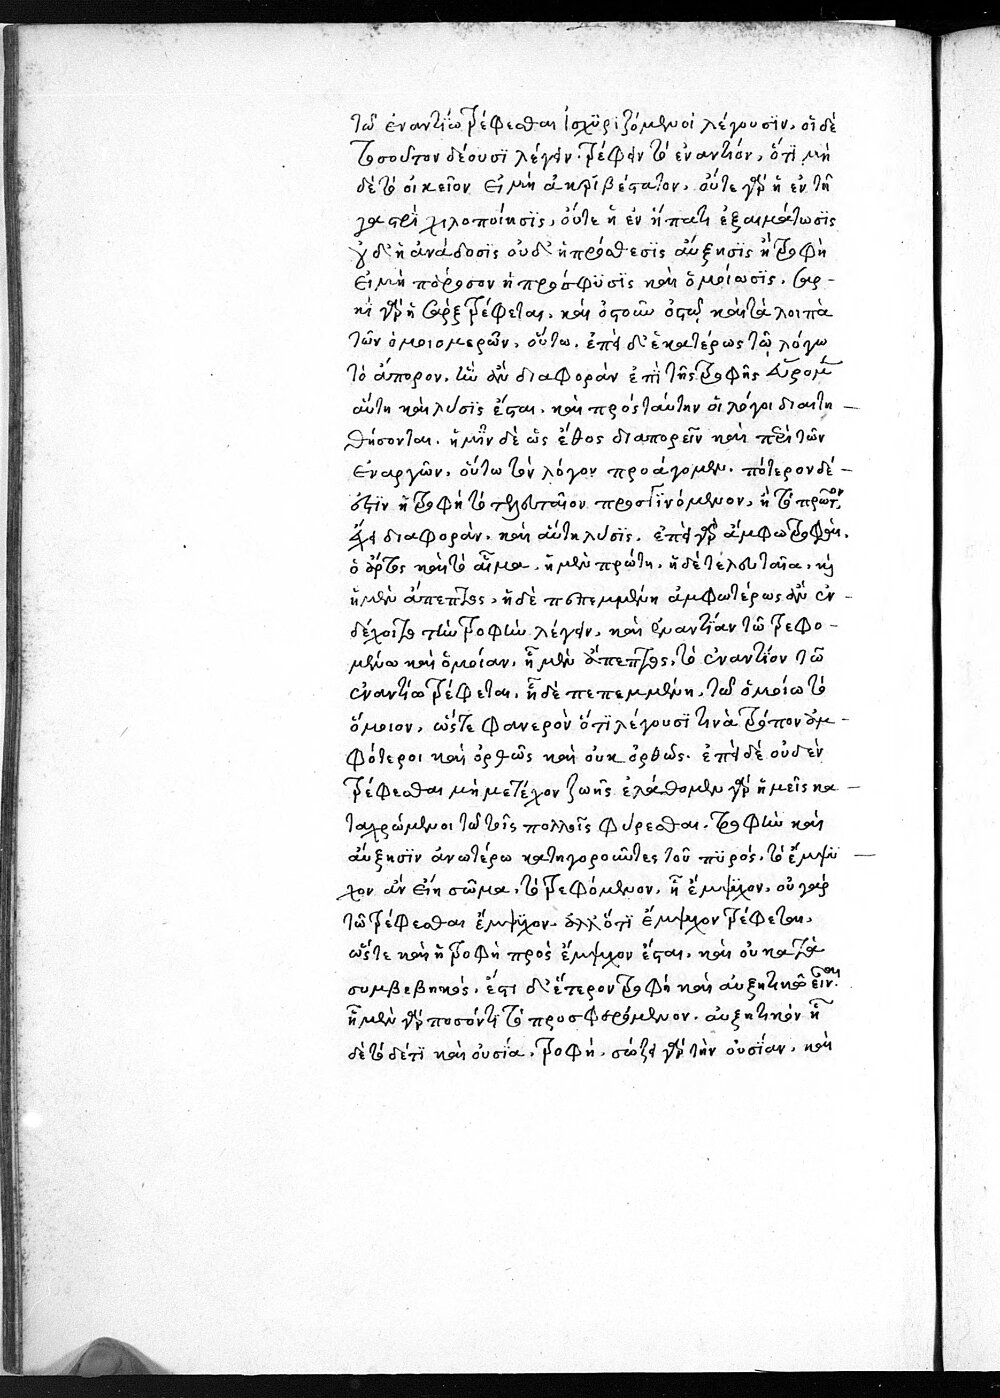 τῶ ἐναντίω τρέφεσθαι ἰσχϋριζόμενοι λέγουσϊν, οἱ δὲ
τοσοῦτον δέουσϊ λέγειν τρέφειν τὸ ἐναντίον, ὅτϊ μὴ
δὲ τὸ οἰκεῖον εἰ μὴ ἀκρϊβέστατον, οὔτε γὰρ ἡ ἐν τῆ
γαστρὶ χιλοποίησϊς, οὔτε ἡ ἐν ἥπατι ἐξαιμάτωσϊς
οὐδ' ἡ ἀνάδοσϊς οὐδ' ἡ πρόσθεσϊς αὔξησϊς ἢ τροφὴ
εἰ μὴ πόρρσον ἡ πρόσφϋσϊς καὶ ὁμοίωσϊς, σαρ-
κὶ γὰρ ἡ σὰρξ τρέφεται, καὶ ὀστοῦν ὀστῶ καὶ τὰ λοιπὰ
τῶν ὁμοιομερῶν, οὕτω. ἐπεὶ δ' ἑκατέρως τῶ λόγω
τὸ ἄπορον, ἣν ἂν διαφορὰν ἐπὶ τῆς τροφῆς εὕρομεν
αὕτη καὶ λύσϊς ἔσται, καὶ πρὸς ταύτην οἱ λόγοι διαιτη-
θήσονται. ἡμῖν δὲ ὡς ἔθος διαπορεῖν καὶ περὶ τῶν
ἐναργῶν, οὕτω τὸν λόγον προάγομεν. πότερον δέ-
ἐστϊν ἡ τροφὴ τὸ τελευταῖον προσγϊνόμενον, ἢ τὸ πρῶτον,
ἔχει διαφορὰν, καὶ αὕτη λύσϊς. ἐπεὶ γὰρ ἄμφω τροφὴ,
ὁ ἄρτος καὶ τὸ αἷμα, ἡ μὲν πρώτη, ἡ δὲ τελευταῖα, καὶ
ἡ μὲν ἄπεπτος, ἡ δὲ πεπεμμένη ἀμφωτέρως ἂν ἐν-
δέχοιτο τὴν τροφὴν λέγειν, καὶ ἐναντίαν τῶ τρεφο-
μένω καὶ ὁμοίαν, ἧ μὲν ἄπεπτος, τὸ ἐναντίον τῶ
ἐναντίω τρέφεται, ἧ δὲ πεπεμμένη, τῶ ὁμοίω τὸ
ὅμοιον, ὥστε φανερὸν ὅτϊ λέγουσϊ τινὰ τρόπον ἀμ-
φότεροι καὶ ὀρθῶς καὶ οὐκ ὀρθῶς. ἐπεὶ δὲ οὐδὲν
τρέφεσθαι μὴ μετέχον ζωῆς ἐλάθομεν γὰρ ἡμεῖς κα-
ταχρώμενοι τῶ τοῖς πολλοῖς φύρεσθαι. τροφὴν καὶ
αὔξησϊν ἀνωτέρω κατηγοροῦντες τοῦ πϋρός, τὸ ἔμψϋ-
χον ἂν εἴη σῶμα, τὸ τρεφόμενον, ἧ ἔμψϋχον, οὐ γὰρ
τῶ τρέφεσθαι ἔμψϋχον, ἀλλ' ὅτϊ ἔμψυχον τρέφεται,
ὥστε καὶ ἡ τροφὴ πρὸς ἔμψυχον ἔσται, καὶ οὐ κατὰ
συμβεβηκός, ἔστι δ' ἕτερον τροφὴ καὶ αὐξητικῶ εἶναι.
ἧ μὲν γὰρ ποσόν τϊ τὸ προσφερόμενον, αὐξητικὸν ἧ
δὲ τόδέ τϊ καὶ οὐσία, τροφή, σώζει γὰρ τὴν οὐσίαν, καὶ